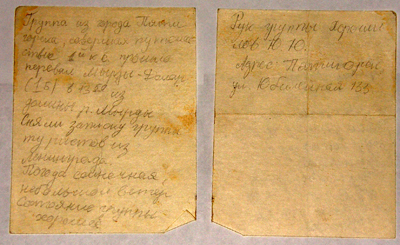 Группа из города Пяти
горска, совершая путеше
ствие 1й к.с. прошла
перевал Мырды-
(1Б) в 13 50 из
долины р. Мырды
Сняли записку группы
туристов из
Погода солнечная
небольшой ветер
Состояние группы
хорошее
Рук. группы
Ю. Ю.
Адрес Пятигорск
ул. Юбилейная